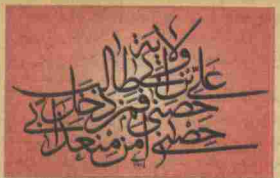 ولاية
علي بن أبي طالب
حصني فمن دخل
حصني أمن من عذابي